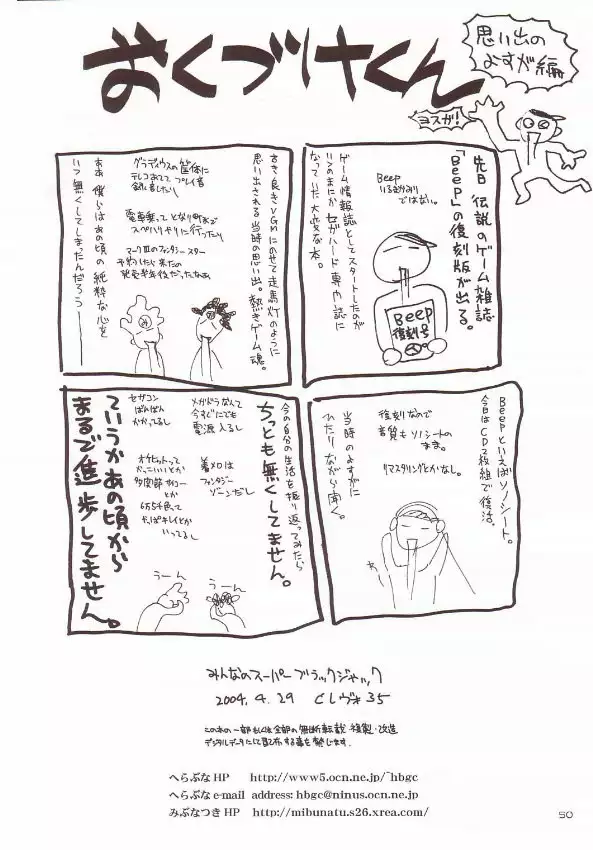 おくづけくん
思い出の
よすが編
ヨスガ!
先日 伝説のゲーム雑誌
「Beep」の復刻版が出る。
Beep
いろはかるり
ではない。
Beep
復刻号
ゲーム情報誌としてスタートしたのが
いつのまにかセガハード専門誌に
なっていた大変な本。
古き良きVGMにのせて走馬灯のように
思い出される当時の思い出。熱きゲーム魂。
グラディウスの筐体に
テレコあててプレイ音
録音したり
電車乗ってとなり町まで
スペハリやりに行ったり
マークⅢのファンタシースター
予約したら来たの
発売半年後だったなぁ
ああ 僕らはあの頃の純粋な心を
いつ無くしてしまったんだろうー
Beepといえばソノシート。
今日はCD2枚組で復活。
復刻なので
音質もソノシートの
まま。
リマスタリングとかなし。
当時のよすがに
ひたりながら聞く。
今の自分の生活を振り返ってみたら
ちっとも無くしてません。
メガドラなんて
今すぐにでも
電源入るし
セガコン
ばんばん
かかってるし
着メロは
ファンタジー
ゾーンだし
オケヒットって
かっこいいとか
多関節サイコー
とか
6万5千色って
やっぱキレイとか
いってるし
ていうかあの頃から
まるで進歩してません。
うーん
うーん
みんなのスーパーブラックジャック
2004.4.29 Cレヴォ35
この本の一部もしくは全部の無断転載・複製・改造
デジタルデータにして配布する事を禁じます。
へらぶなHP http://www5.ocn.ne.jp/~hbgc
へらぶなe-mail address: hbgc@ninus.ocn.ne.jp
みぶなつきHP http://mibunatu.s26.xrea.com/
50